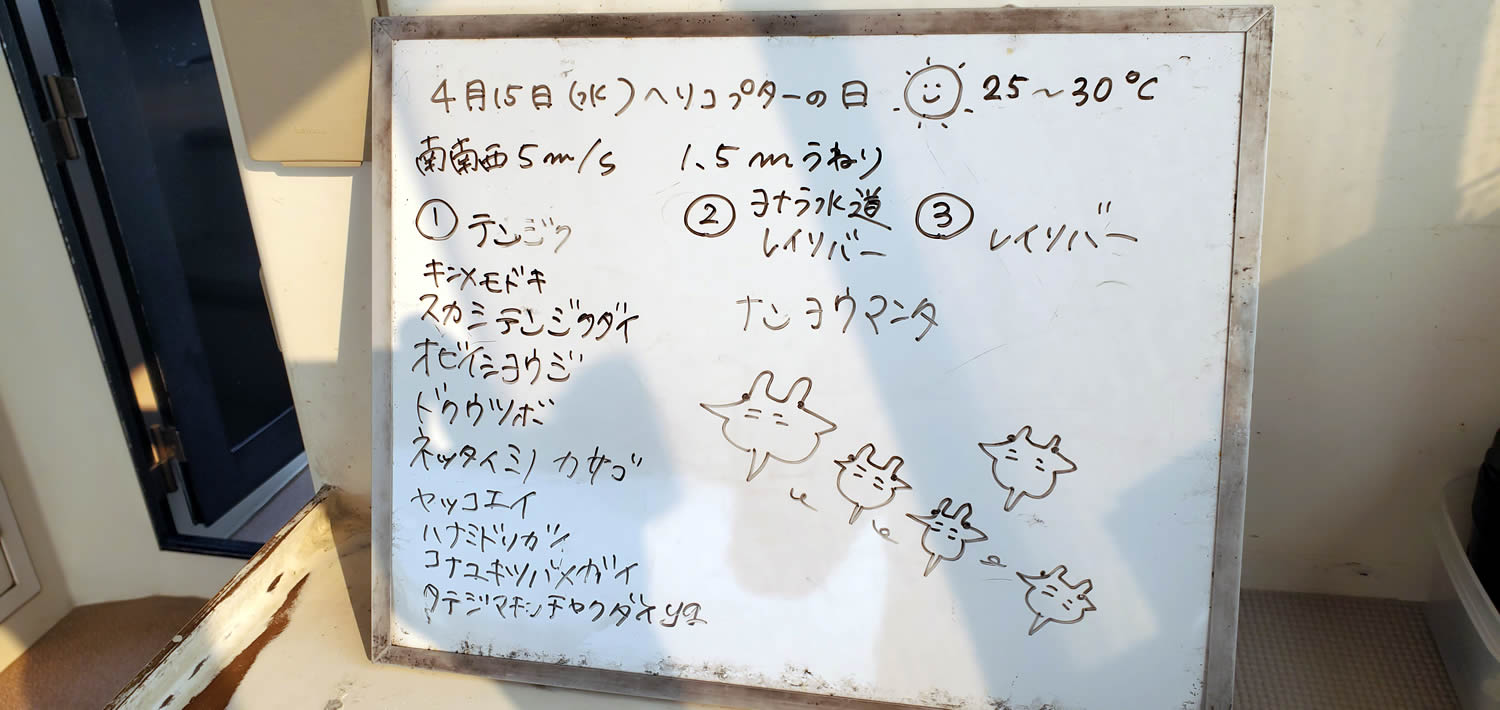 4月15日(水)ヘリコプターの日 25〜30℃
南南西5m/s 1.5mうねり
① テンジク
キンメモドキ
スカシテンジクダイ
オビイシヨウジ
ドクウツボ
ネッタイミノカサゴ
ヤッコエイ
ハナミドリガイ
コナユキツバメガイ
タテジマキンチャクダイyg
② ヨナラ水道
レイソバー
ナンヨウマンタ
③ レイソバー